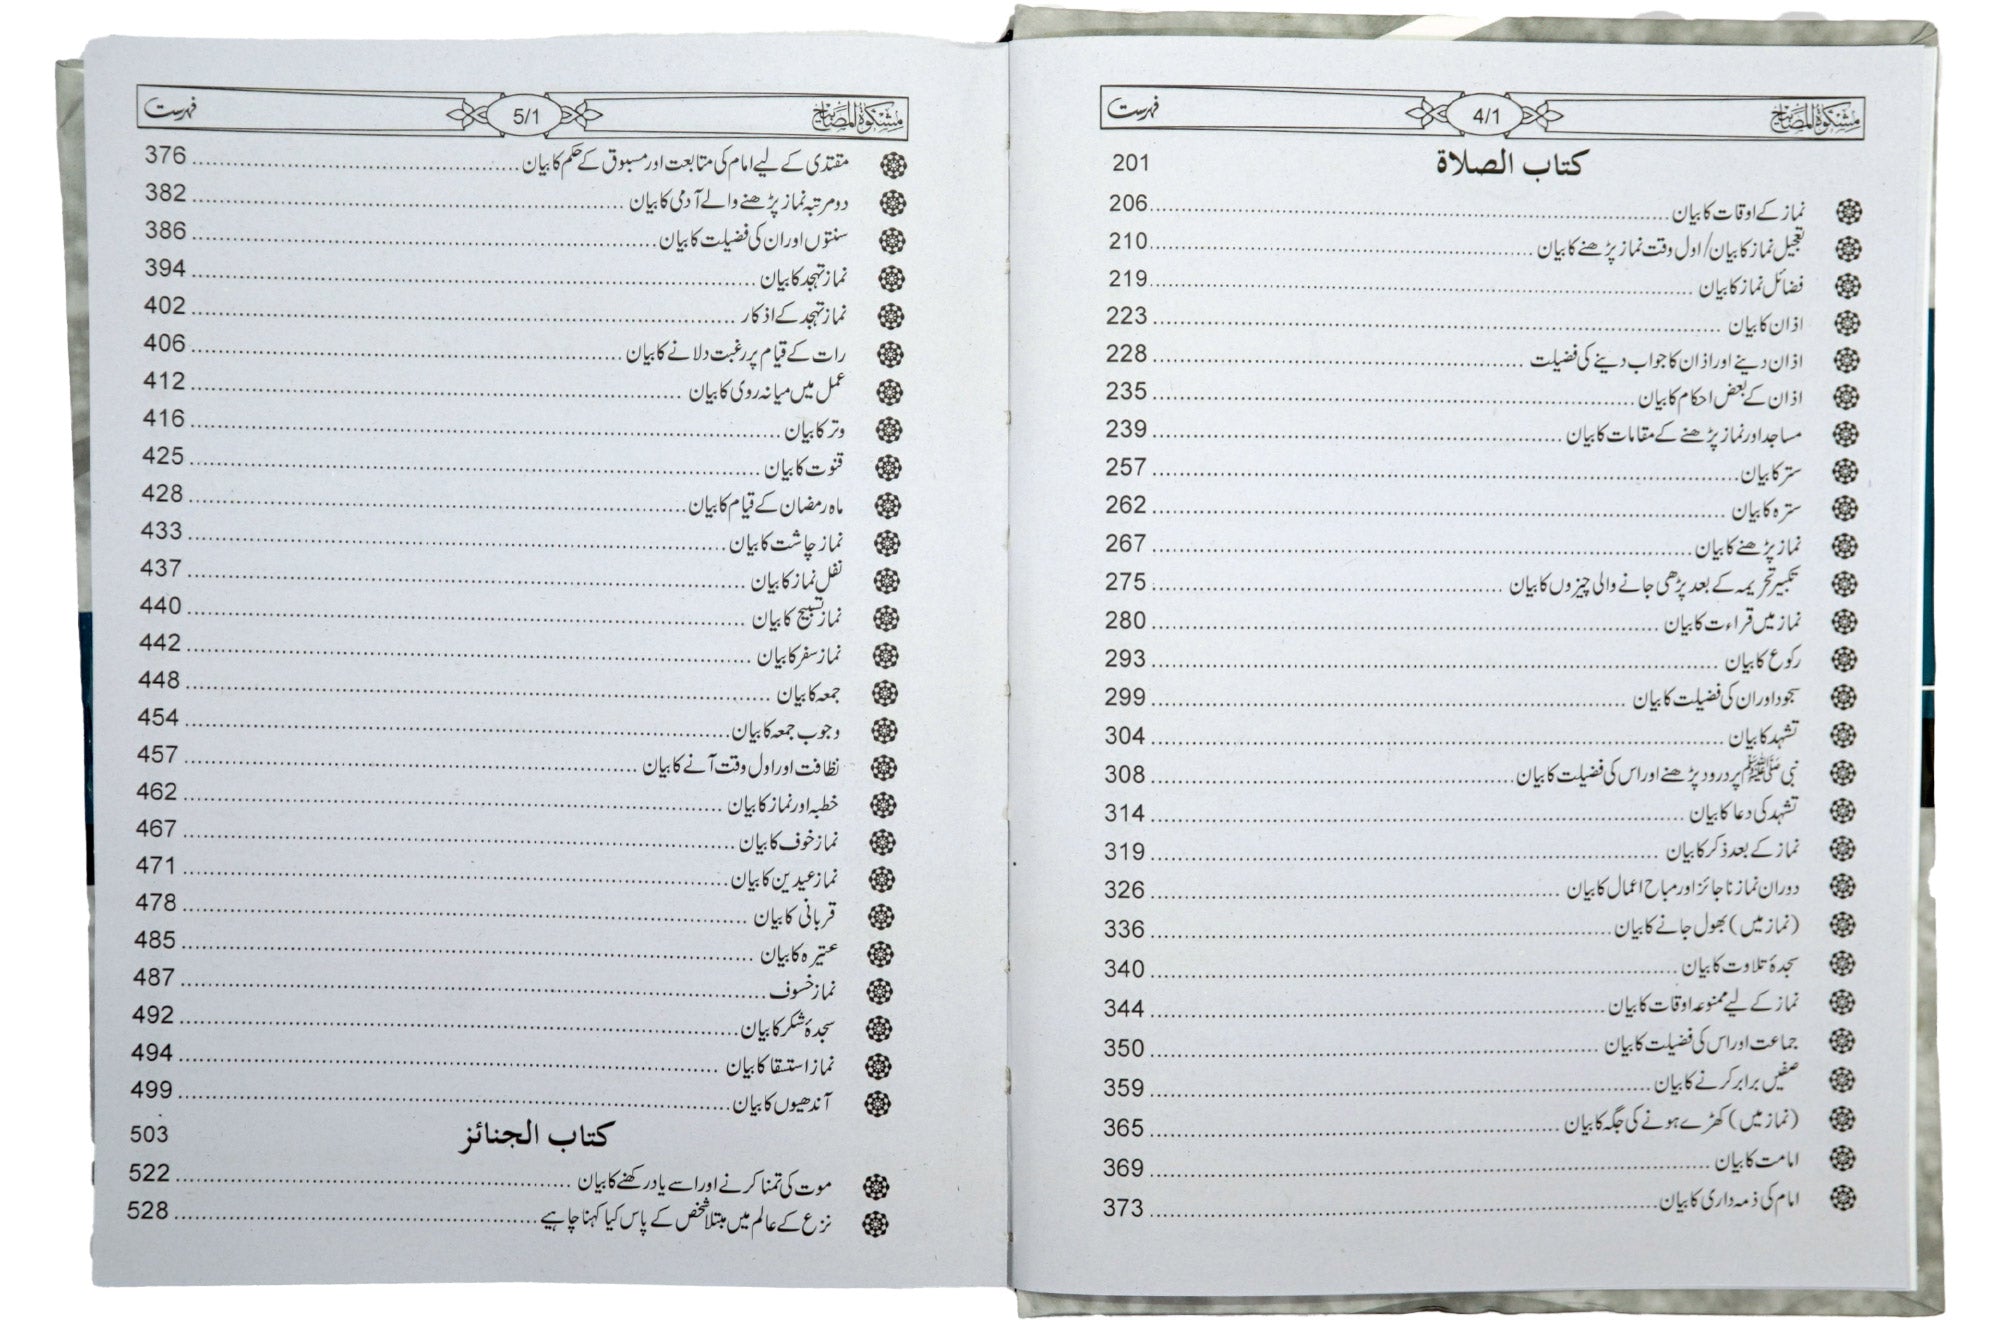 مشکوٰۃ المصابیح 4/1 فہرست
کتاب الصلاۃ 201
نماز کے اوقات کا بیان 206
تعجیل نماز کا بیان/ اول وقت نماز پڑھنے کا بیان 210
فضائل نماز کا بیان 219
اذان کا بیان 223
اذان دینے اور اذان کا جواب دینے کی فضیلت 228
اذان کے بعض احکام کا بیان 235
مساجد اور نماز پڑھنے کے مقامات کا بیان 239
ستر کا بیان 257
سترہ کا بیان 262
نماز پڑھنے کا بیان 267
تکبیر تحریمہ کے بعد پڑھی جانے والی چیزوں کا بیان 275
نماز میں قراءت کا بیان 280
رکوع کا بیان 293
سجود اور ان کی فضیلت کا بیان 299
تشہد کا بیان 304
نبی ﷺ پر درود پڑھنے اور اس کی فضیلت کا بیان 308
تشہد کی دعا کا بیان 314
نماز کے بعد ذکر کا بیان 319
دوران نماز ناجائز اور مباح اعمال کا بیان 326
(نماز میں) بھول جانے کا بیان 336
سجدۂ تلاوت کا بیان 340
نماز کے لیے ممنوعہ اوقات کا بیان 344
جماعت اور اس کی فضیلت کا بیان 350
صفیں برابر کرنے کا بیان 359
(نماز میں) کھڑے ہونے کی جگہ کا بیان 365
امامت کا بیان 369
امام کی ذمہ داری کا بیان 373
مشکوٰۃ المصابیح 5/1 فہرست
مقتدی کے لیے امام کی متابعت اور مسبوق کے حکم کا بیان 376
دو مرتبہ نماز پڑھنے والے آدمی کا بیان 382
سنتوں اور ان کی فضیلت کا بیان 386
نماز تہجد کا بیان 394
نماز تہجد کے اذکار 402
رات کے قیام پر رغبت دلانے کا بیان 406
عمل میں میانہ روی کا بیان 412
وتر کا بیان 416
قنوت کا بیان 425
ماہ رمضان کے قیام کا بیان 428
نماز چاشت کا بیان 433
نفل نماز کا بیان 437
نماز تسبیح کا بیان 440
نماز سفر کا بیان 442
جمعہ کا بیان 448
وجوب جمعہ کا بیان 454
نظافت اور اول وقت آنے کا بیان 457
خطبہ اور نماز کا بیان 462
نماز خوف کا بیان 467
نماز عیدین کا بیان 471
قربانی کا بیان 478
عتیرہ کا بیان 485
نماز خسوف 487
سجدۂ شکر کا بیان 492
نماز استسقا کا بیان 494
آندھیوں کا بیان 499
کتاب الجنائز 503
موت کی تمنا کرنے اور اسے یاد رکھنے کا بیان 522
نزع کے عالم میں مبتلا شخص کے پاس کیا کہنا چاہیے 528